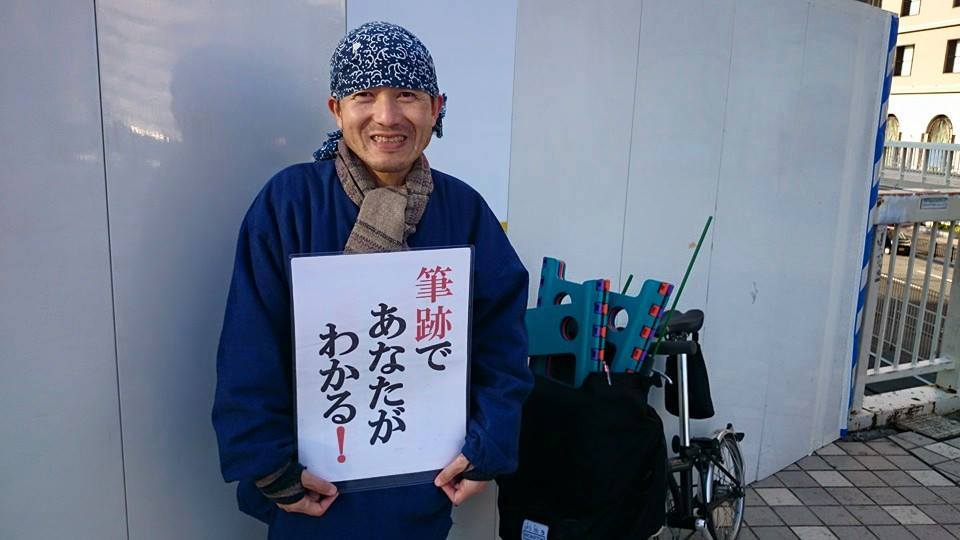 筆跡で
あなたが
わかる!